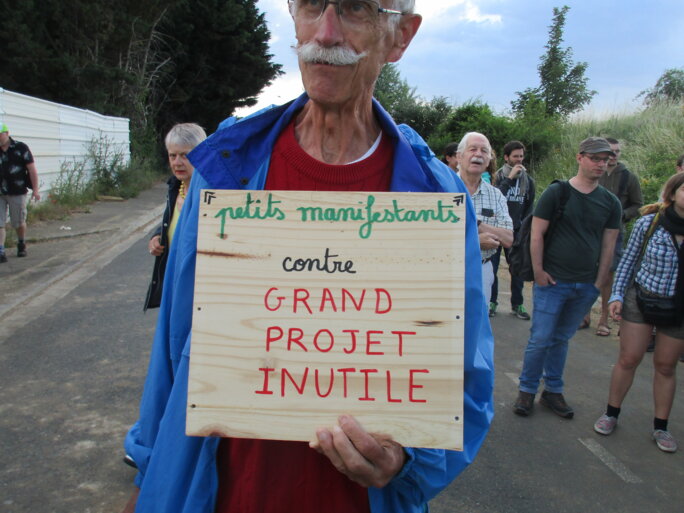 petits manifestants
contre
GRAND
PROJET
INUTILE